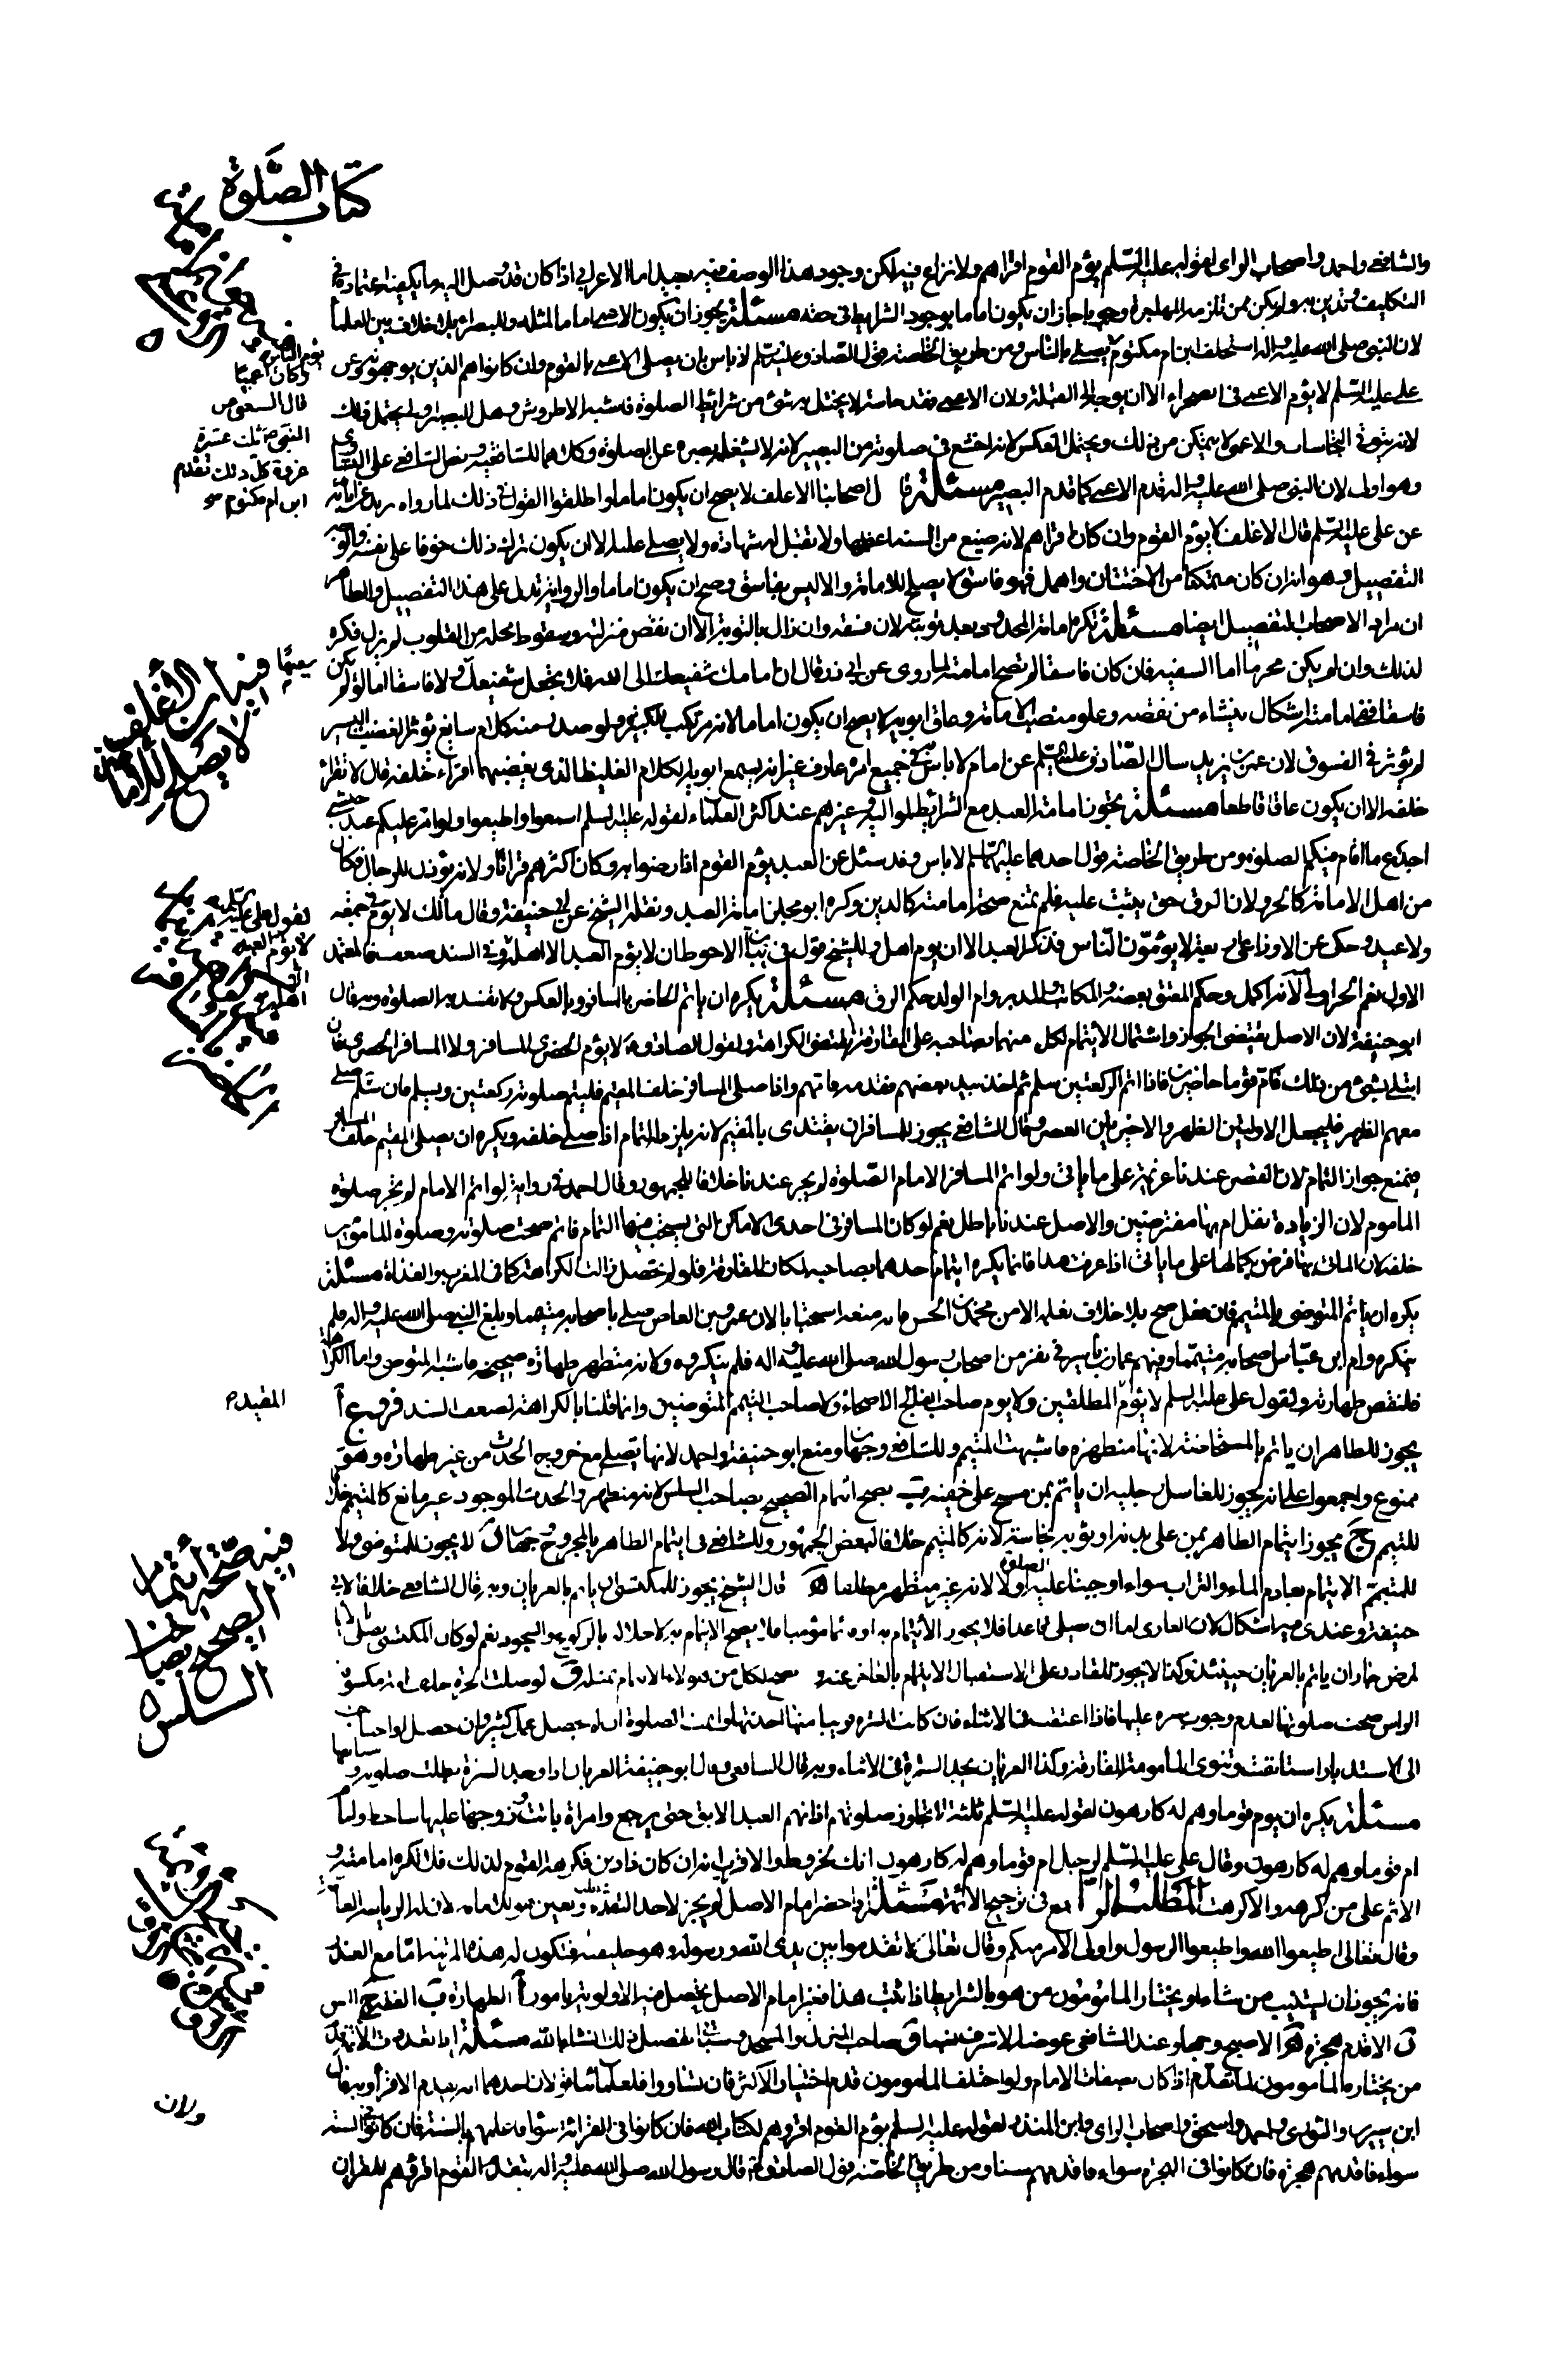 كتاب الصلوة
والشافعي واحمد واصحاب الراى لقوله عليه السلم يؤم القوم اقراهم ولا نزاع فيه لكن وجود هذا الوصف فيه بعيد اما الاعرابي اذا كان قد وصل اليه ما يكفيه اعتماده في
التكليف وتدين به ولم يكن ممن تلزمه المهاجرة وجوبا جاز ان يكون اماما بوجود الشرايط في حقه مسئلة يجوز ان يكون الاعمى اماما لمثله وللبصراء بلا خلاف بين العلماء
لان النبي صلى الله عليه واله استخلف ابن ام مكتوم يصلي بالناس ومن طريق الخاصة قول الصادق عليه السلم لا باس بان يصلي الاعمى بالقوم وان كانوا هم الذين يوجهونه وعن
علي عليه السلم لا يؤم الاعمى في الصحراء الا ان يوجه الى القبلة ولان الاعمى فقد حاسة لا يختل به شئ من شرائط الصلوة فاشبه الاطروش وهل البصير اولى يحتمل ذلك
لانه يتوقى النجاسات والاعمى لا يتمكن من ذلك ويحتمل العكس لانه اخشع في صلوته من البصير لانه لا يشغله بصره عن الصلوة وكلاهما للشافعية ونص الشافعي على التساوى
وهو اولى لان النبي صلى الله عليه واله قدم الاعمى كما قدم البصير مسئلة قال اصحابنا الاغلف لا يصح ان يكون اماما واطلقوا القول في ذلك لما رواه زيد عن ابائه
عن علي عليه السلم قال الاغلف لا يؤم القوم وان كان اقراهم لانه ضيع من السنة اعظمها ولا تقبل له شهادة ولا يصلى عليه الا ان يكون ترك ذلك خوفا على نفسه والوجه
التفصيل وهو انه ان كان متمكنا من الاختتان واهمل فهو فاسق لا يصلح للامامة والا ليس بفاسق وصح ان يكون اماما والرواية تدل على هذا التفصيل والظاهر
ان مراد الاصحاب التفصيل ايضا مسئلة تكره امامة المحدود بعد توبته لان فسقه وان زال بالتوبة الا ان نقص منزلته وسقوط محله من القلوب لم يزل فكره
لذلك وان لم يكن محرما اما السفيه فان كان فاسقا لم تصح امامته لما روى عن ابي ذر قال ان امامك شفيعك الى الله فلا تجعل شفيعك سفيها ولا فاسقا اما لو لم يكن
فاسقا ففي امامته اشكال ينشاء من نقصه وعلو منصب الامامة وعاق ابويه لا يصح ان يكون اماما لانه مرتكب للكبيرة ولو صدر منه كلام سايغ يؤثر الغضب اليسير
لم يؤثر في الفسوق لان عمر بن يزيد سال الصادق عليه السلم عن امام لا باس به في جميع امره عارف غير انه يسمع ابويه الكلام الغليظ الذى يغيضهما اقراء خلفه قال لا تقرا
خلفه الا ان يكون عاقا قاطعا مسئلة يجوز امامة العبد مع الشرايط لمواليه وغيرهم عند اكثر العلماء لقوله عليه السلم اسمعوا واطيعوا ولو امر عليكم عبد حبشي
اجدع ما اقام فيكم الصلوة ومن طريق الخاصة قول احدهما عليهما السلم لا باس وقد سئل عن العبد يؤم القوم اذا رضوا به وكان اكثرهم قرانا ولانه يؤذن للرجال فكان
من اهل الامامة كالحر ولان الرق حق يثبت عليه فلم يمنع صحة امامته كالدين وكره ابو مجلز امامة العبد ونقله الشيخ عن ابي حنيفة وقال مالك لا يؤم في جمعة
ولا عيد وحكي عن الاوزاعي اربعة لا يؤمون الناس فذكر العبد الا ان يوم اهله وللشيخ قول في الاحوط ان لا يؤم العبد الا اهله وفي السند ضعف فالمعتمد
الاول نعم الحر اولى لانه اكمل وحكم المعتق بعضه والمكاتب والمدبر وام الولد حكم الرق مسئلة يكره ان ياتم الحاضر بالمسافر وبالعكس ولا تفسد به الصلوة وبه قال
ابو حنيفة لان الاصل يقتضى الجواز واشتمال الائتمام لكل منهما بصاحبه على المفارقة اقتضى الكراهة ولقول الصادق لا يؤم الحضرى المسافر ولا المسافر الحضرى فان
ابتلى بشئ من ذلك فام قوما حاضرين فاذا اتم الركعتين سلم ثم اخذ بيد بعضهم فقدمه فامهم واذا صلى المسافر خلف المقيم فليتم صلوته ركعتين ويسلم فان صلى
معهم الظهر فليجعل الاولتين الظهر والاخيرتين العصر وقال الشافعي يجوز للمسافر ان يقتدى بالمقيم لانه يلزمه التمام اذا صلى خلفه ويكره ان يصلي المقيم خلف المسافر
ونمنع جواز التمام لان القصر عندنا عزيمة على ما ياتي ولو اتم المسافر الامام الصلوة لم يجز عندنا خلافا للجمهور وقال احمد في رواية لو اتم الامام لم يجز صلوة
الماموم لان الزيادة نفل ام بها مفترضين والاصل عندنا باطل نعم لو كان المسافر في احدى الاماكن التي يستحب فيها التمام فاتم صحت صلوته وصلوة المامومين
خلفه لان الماتي بها فرض بكمالها على ما ياتي اذا عرفت هذا فانما يكره ايتمام احدهما بصاحبه لمكان المفارقة فلو لم تحصل زالت الكراهة كما في المغرب والغداة مسئلة
يكره ان ياتم المتوضى بالمتيمم فان فعل صح بلا خلاف نعلمه الا من محمد بن الحسن فانه منعه استحبابا لان عمرو بن العاص صلى باصحابه متيمما وبلغ النبي صلى الله عليه واله فلم
ينكره وام ابن عباس اصحابه متيمما وفيهم عمار بن ياسر في نفر من اصحاب رسول الله صلى الله عليه واله فلم ينكروه ولانه متطهر طهارة صحيحة فاشبه المتوضى واما الكراهة
فلنقص طهارته ولقول علي عليه السلم لا يؤم المطلقين ولا يوم صاحب الفالج الاصحاء ولا صاحب التيمم المتوضئين وانما قلنا بالكراهة لضعف السند فروع آ
يجوز للطاهر ان ياتم بالمستحاضة لانها متطهرة فاشبهت المتيمم وللشافعي وجهان ومنع ابو حنيفة واحمد لانها تصلي مع خروج الحدث من غير طهارة وهو
ممنوع واجمعوا على انه يجوز للغاسل رجليه ان ياتم بمن مسح على خفيه ب يصح ائتمام الصحيح بصاحب السلس لانه متطهر والحدث الموجود غير مانع كالمتيمم خلافا
للمتيمم ج يجوز ايتمام الطاهر بمن على بدنه او ثوبه نجاسة لانه كالمتيمم خلافا لبعض الجمهور وللشافعي في ايتمام الطاهر بالمجروح وجهان د لا يجوز للمتوضي ولا
للمتيمم الايتمام بعادم الماء والتراب سواء اوجبنا عليه الصلوة او لا لانه غير متطهر مطلقا ه قال الشيخ يجوز للمكتسى ان ياتم بالعريان وبه قال الشافعي خلافا لابي
حنيفة وعندى فيه اشكال لان العارى اما ان يصلي قاعدا فلا يجوز الائتمام به او قائما مؤميا فلا يصح الائتمام به لاخلاله بالركوع والسجود نعم لو كان المكتسى يصلي
لمرض جاز ان ياتم بالعريان حينئذ وكذا لا يجوز للقادر على الاستقبال الايتمام بالعاجز عنه و يصح لكل من هؤلاء الايتمام بمثله ز لو صلت الحرة خلف امة مكشوفة
الراس صحت صلوتها لعدم وجوب ستره عليها فاذا اعتقت في الاثناء فان كانت السترة قريبا منها اخذتها واتمت الصلوة ان لم يحصل عمل كثير وان حصل او احتاجت
الى الاستدبار استانفت وتنوى المامومة المفارقة وكذا العريان يجد السترة في الاثناء وبه قال الشافعي وقال ابو حنيفة العريان اذا وجد السترة بطلت صلوته
مسئلة يكره ان يوم قوما وهم له كارهون لقوله عليه السلم ثلثة لا تجاوز صلوتهم اذانهم العبد الابق حتى يرجع وامراة باتت وزوجها عليها ساخط وامام
ام قوما وهم له كارهون وقال علي عليه السلم لرجل ام قوما وهم له كارهون انك لخروط والاقرب انه ان كان ذا دين فكرهه القوم لذلك فلا تكره امامته و
الاثم على من كرهه والا كرهت المطلب الرابع في ترجيح الائمة مسئلة اذا حضر امام الاصل لم يجز لاحد التقدم عليه وتعين هو للامامة لان له الرياسة العامة
وقال تعالى اطيعوا الله واطيعوا الرسول واولى الامر منكم وقال تعالى لا تقدموا بين يدى الله ورسوله وهو خليفته فتكون له هذه المرتبة اما مع العذر
فانه يجوز ان يستنيب من شاء او يختار المامومون من هو بالشرايط اذا ثبت هذا فغير امام الاصل يحصل فيه الاولوية بامور آ الطهارة ب الفقه ج السن
د الاقدم هجرة ه الاصبح وجها وعند الشافعي عوضه الاشرف نسبا و صاحب المنزل والمسجد وسياتي تفصيل ذلك انشاء الله مسئلة
من يختاره المامومون للتقدم اذا كان بصفات الامام ولو اختلف المامومون قدم اختيار الاكثر فان تساووا لان احدهما انه يقدم الاقرأ وبه قال
ابن سيرين والثورى واحمد واسحق واصحاب الراى وابن المنذر لقوله عليه السلم يؤم القوم اقرؤهم لكتاب الله فان كانوا في القراءة سواء فاعلمهم بالسنة فان كانوا في السنة
سواء فاقدمهم هجرة فان كانوا في الهجرة سواء فاقدمهم سنا ومن طريق الخاصة قول الصادق قال رسول الله صلى الله عليه واله يتقدم القوم اقرؤهم للقران
يؤم الناس
وكان اعمى
قال الشعبي
النبي ثلث عشرة
غزوة كل ذلك يقدم
ابن ام مكتوم
سفيها
فيه ان الأغلف
لا يصلح للامامة
لقول علي عليه السلم
لا يؤم العبد
الا اهله
المقيد
فيه صحة ائتمام
الصحيح بصاحب
السلس
ولان